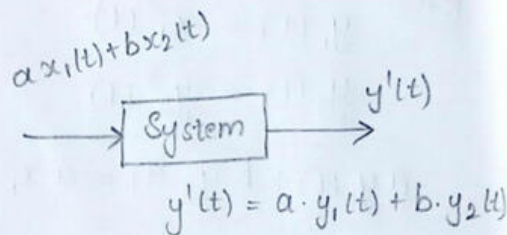 ax₁(t)+bx₂(t)
System
y'(t)
y'(t) = a·y₁(t) + b·y₂(t)